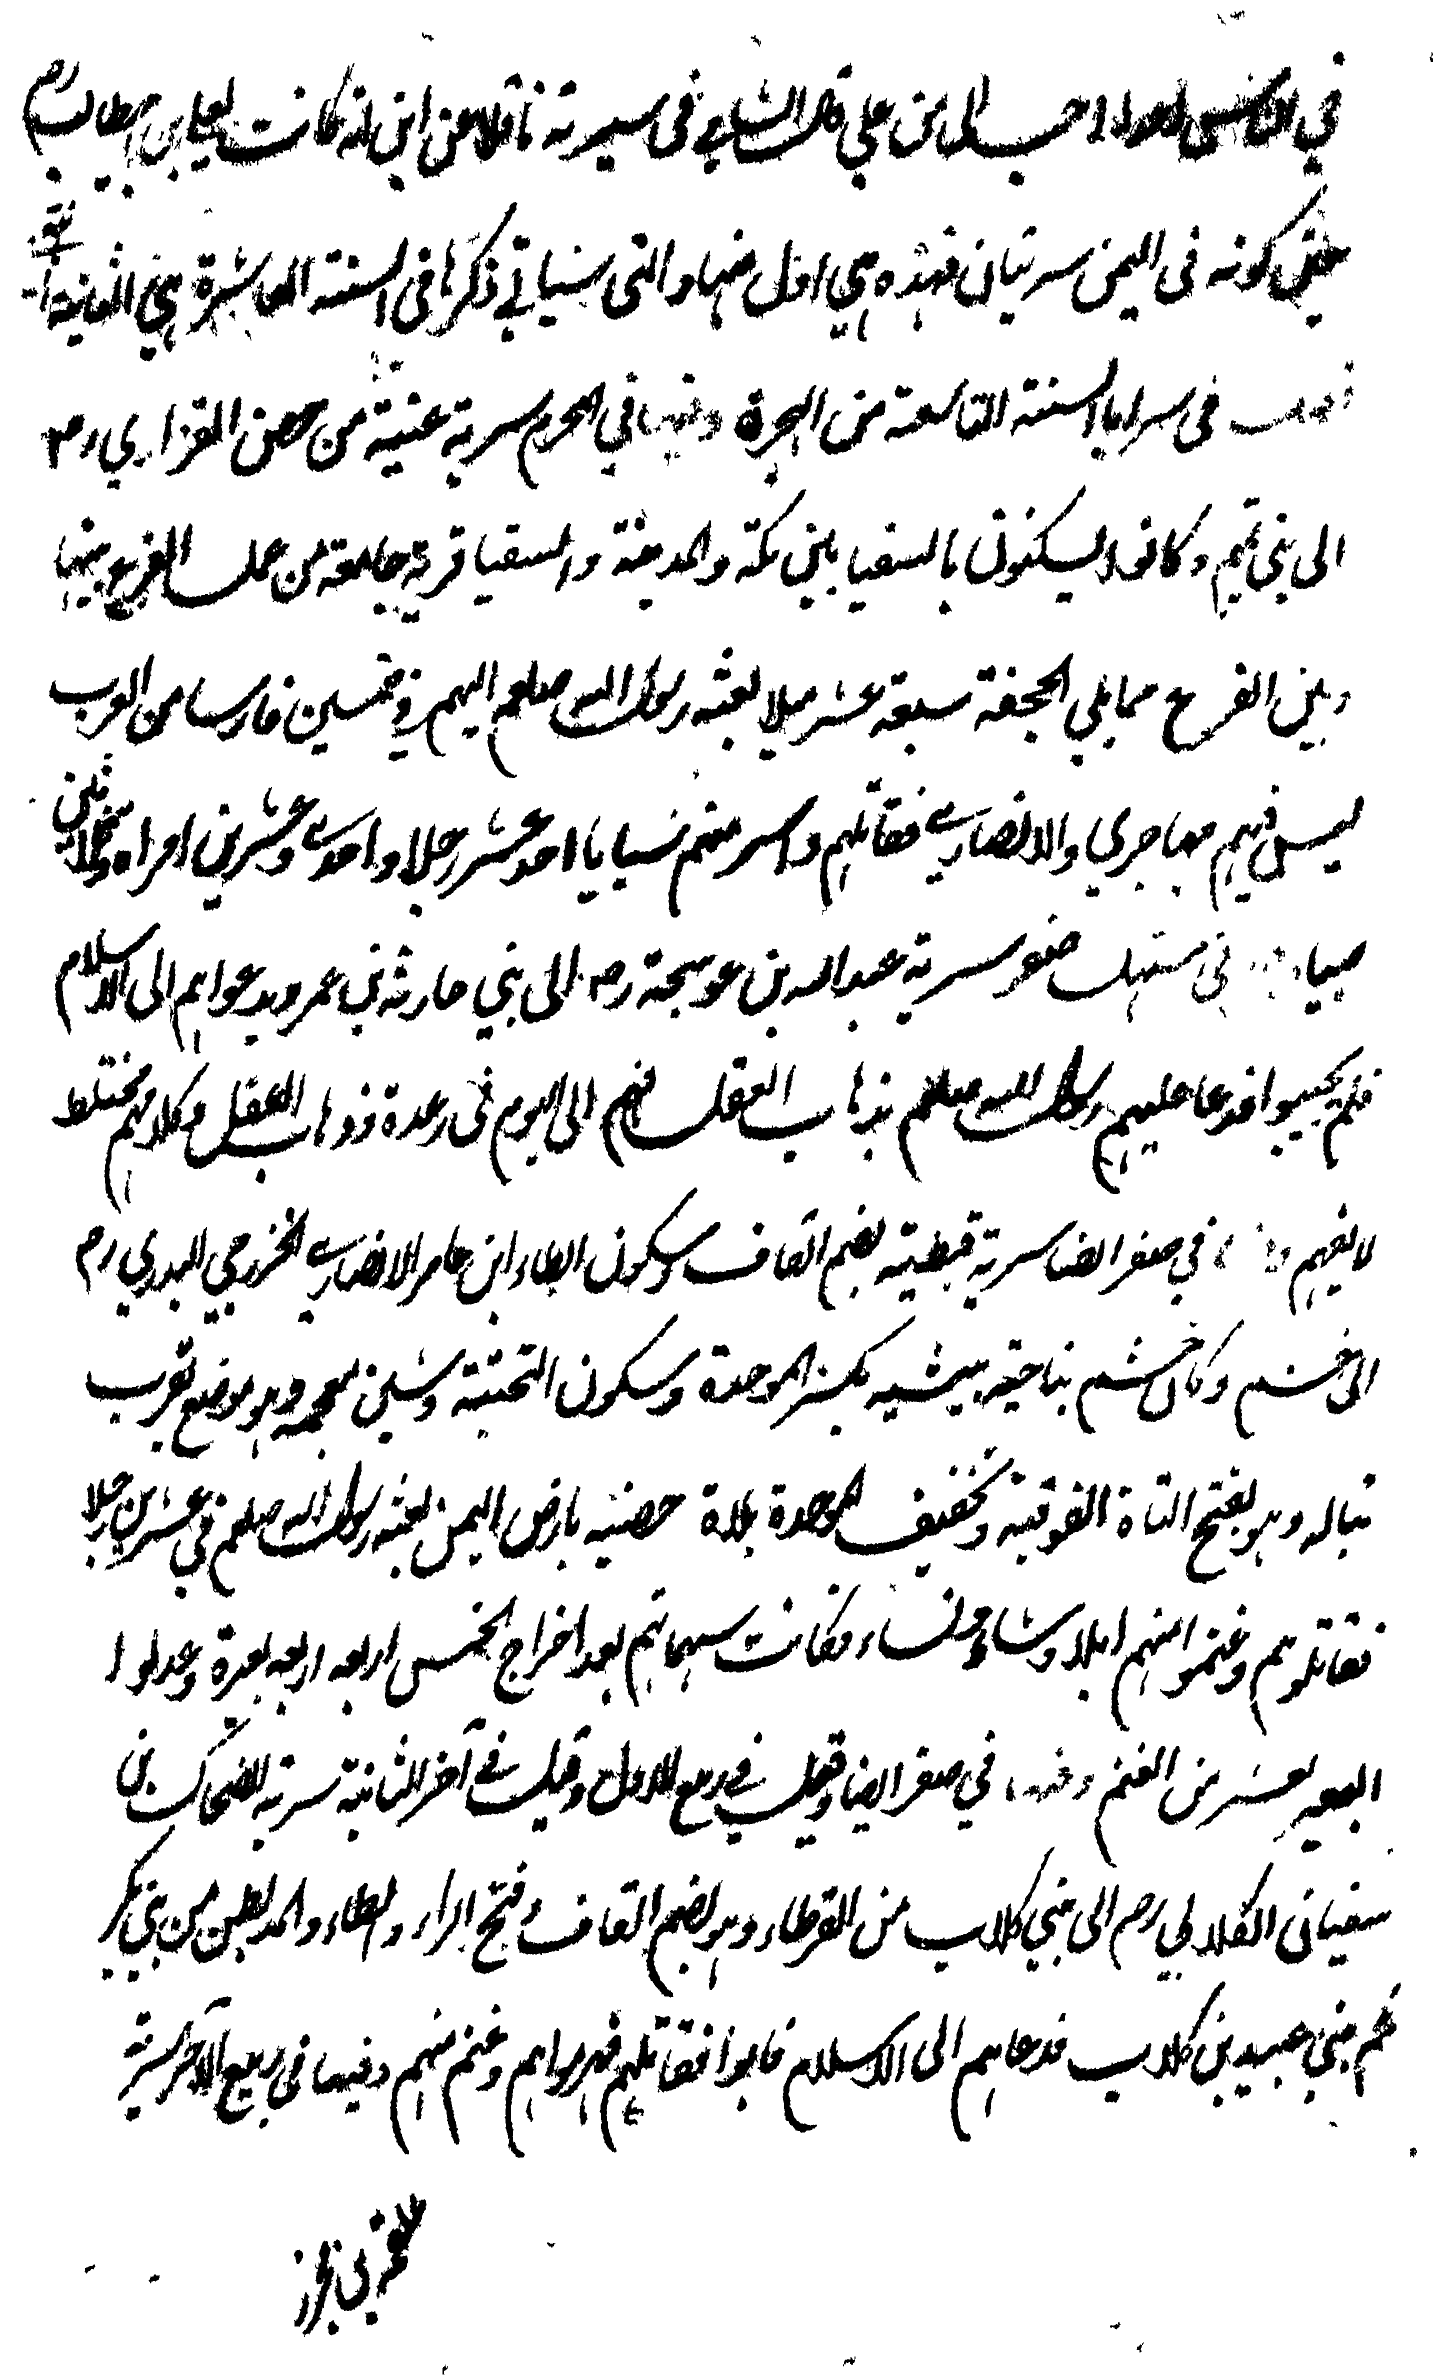 في الخمس احب الى من علي قال الشامي في سيرته ناقلا عن ابن انه كانت لعلي بن ابي طالب رض
حين كونه في اليمن سريتان فهذه هي اول منها والتي سياتي ذكرها في السنة العاشرة هي الثانية
فصل في سرايا السنة التاسعة من الهجرة وفيها في المحرم سرية عيينة من حصن الفزاري رض
الى بني تميم وكانوا يسكنون بالسقيا بين مكة والمدينة والسقيا قرية جامعة من عمل الفرع بينها
وبين الفرع مما يلي الجحفة سبعة عشر ميلا بعثه رسول الله صلعم اليهم في خمسين فارسا من العرب
ليس فيهم مهاجري ولا انصاري فقاتلهم واسر منهم سبايا احد عشر رجلا واحدى وعشرين امراة وثلثين
صبيا وفيها في مستهل صفر سرية عبد الله بن عوسجة رض الى بني حارثه بن عمرو يدعواهم الى الاسلام
فلم يجيبوا فدعا عليهم رسول الله صلعم بذهاب العقل فهم الى اليوم في رعدة وذهاب العقل وكلامهم مختلط
لا يفهم وفيها في صفر ايضا سرية قطبة بضم القاف وسكون الطاء ابن عامر الانصاري الخزرجي البدري رض
الى خثعم وكان خثعم بناحية بيشه بكسر الموحدة وسكون التحتية وشين معجمه وهو موضع بقرب
تباله وهو بفتح التاة الفوقية وتخفيف الموحدة بلدة حصينه بارض اليمن بعثه رسول الله صلعم في عشرين رجلا
فقاتلوهم وغنموا منهم ابلا وشاء ونساء فكانت سهمانهم بعد اخراج الخمس اربعه اربعه ابعرة وعدلوا
البعير بعشر من الغنم وفيها في صفر ايضا وقيل في ربيع الاول وقيل في آخر الثانية سرية الضحاك بن
سفيان الكلابي رض الى بني كلاب من القرطاء وهو بضم القاف وفتح الراء والطاء والمد بطن من بني بكر
ثم بني عبيد بن كلاب فدعاهم الى الاسلام فابوا فقاتلهم فهزمواهم وغنم منهم وفيها في ربيع الآخر سرية